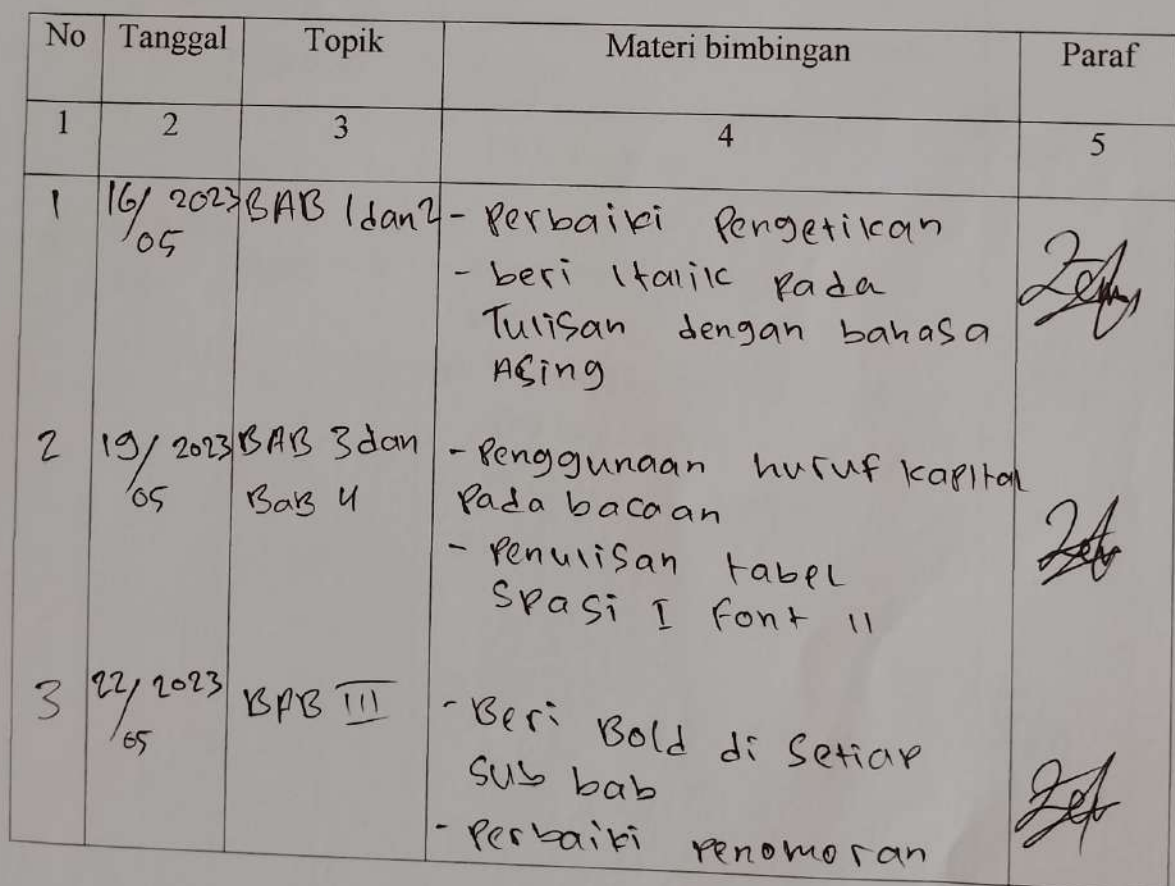 No Tanggal Topik Materi bimbingan Paraf
1 2 3 4 5
1 16/05 2023 BAB 1 dan 2 - Perbaiki Pengetikan
- beri Italik pada
Tulisan dengan bahasa
Asing
2 19/05 2023 BAB 3 dan - Penggunaan huruf kapital
BaB 4 Pada bacaan
- Penulisan tabel
Spasi I Font 11
3 22/05 2023 BAB III - Beri Bold di Setiap
sub bab
- Perbaiki penomoran